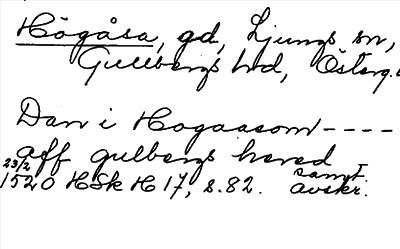 Högåsa, gd, Ljungs sn,
Gullbergs hd, Österg.
Dan i Hogaasom ----
aff gulbergs hered
23/2 1520 HSk H 17, s. 82. samt. avskr.